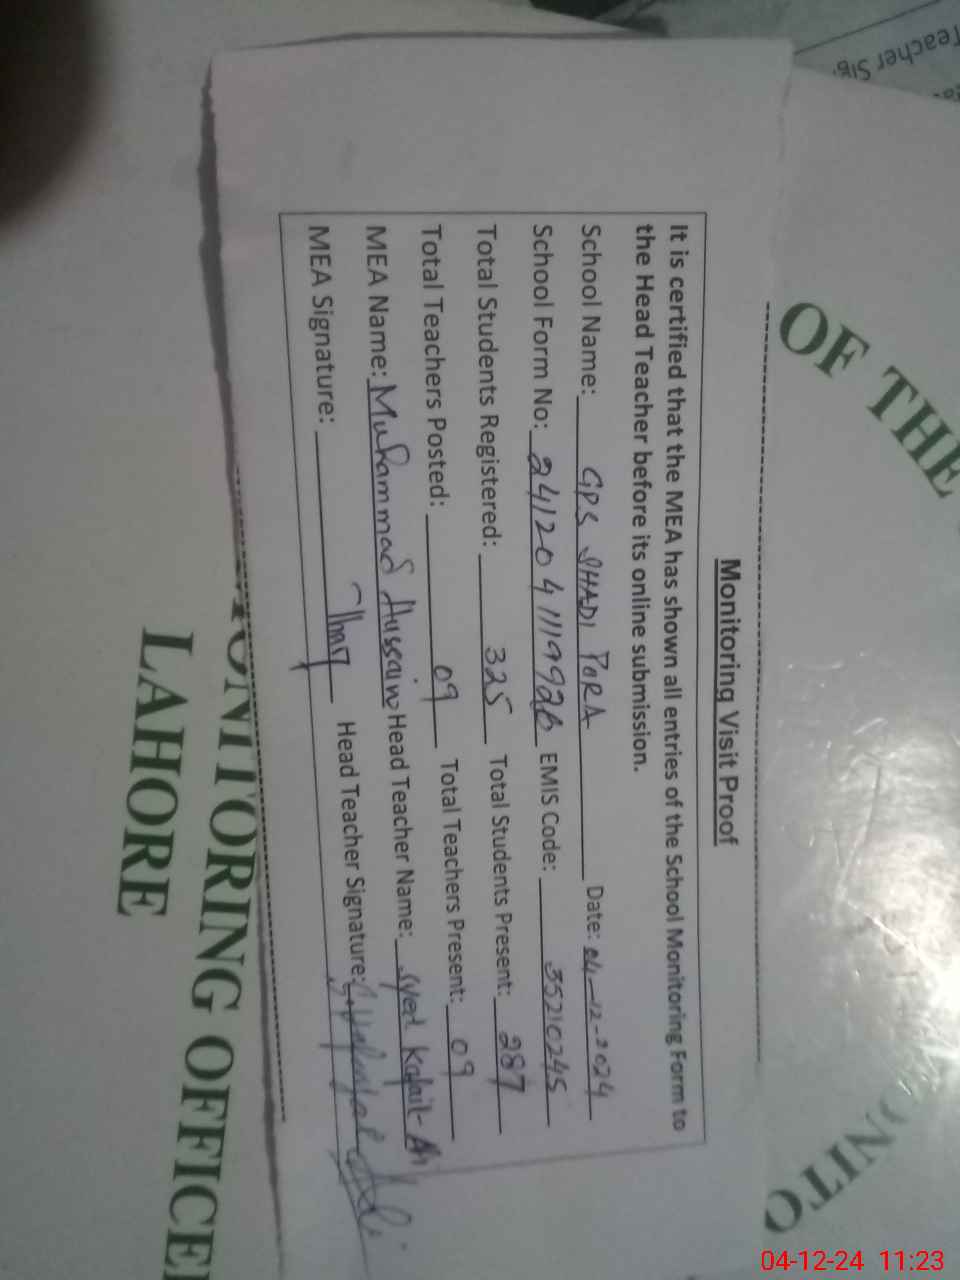 Monitoring Visit Proof
It is certified that the MEA has shown all entries of the School Monitoring Form to
the Head Teacher before its online submission.
School Name: GPS SHADI PORA Date: 04-12-2024
School Form No: 2412041119926 EMIS Code: 35210245
Total Students Registered: 325 Total Students Present: 287
Total Teachers Posted: 09 Total Teachers Present: 09
MEA Name: Muhammad Hussain Head Teacher Name: Syed Kafait Ali
MEA Signature: Head Teacher Signature:
OF THE
ONITO
ONITORING OFFICE
LAHORE
Teacher Sig.
04-12-24 11:23